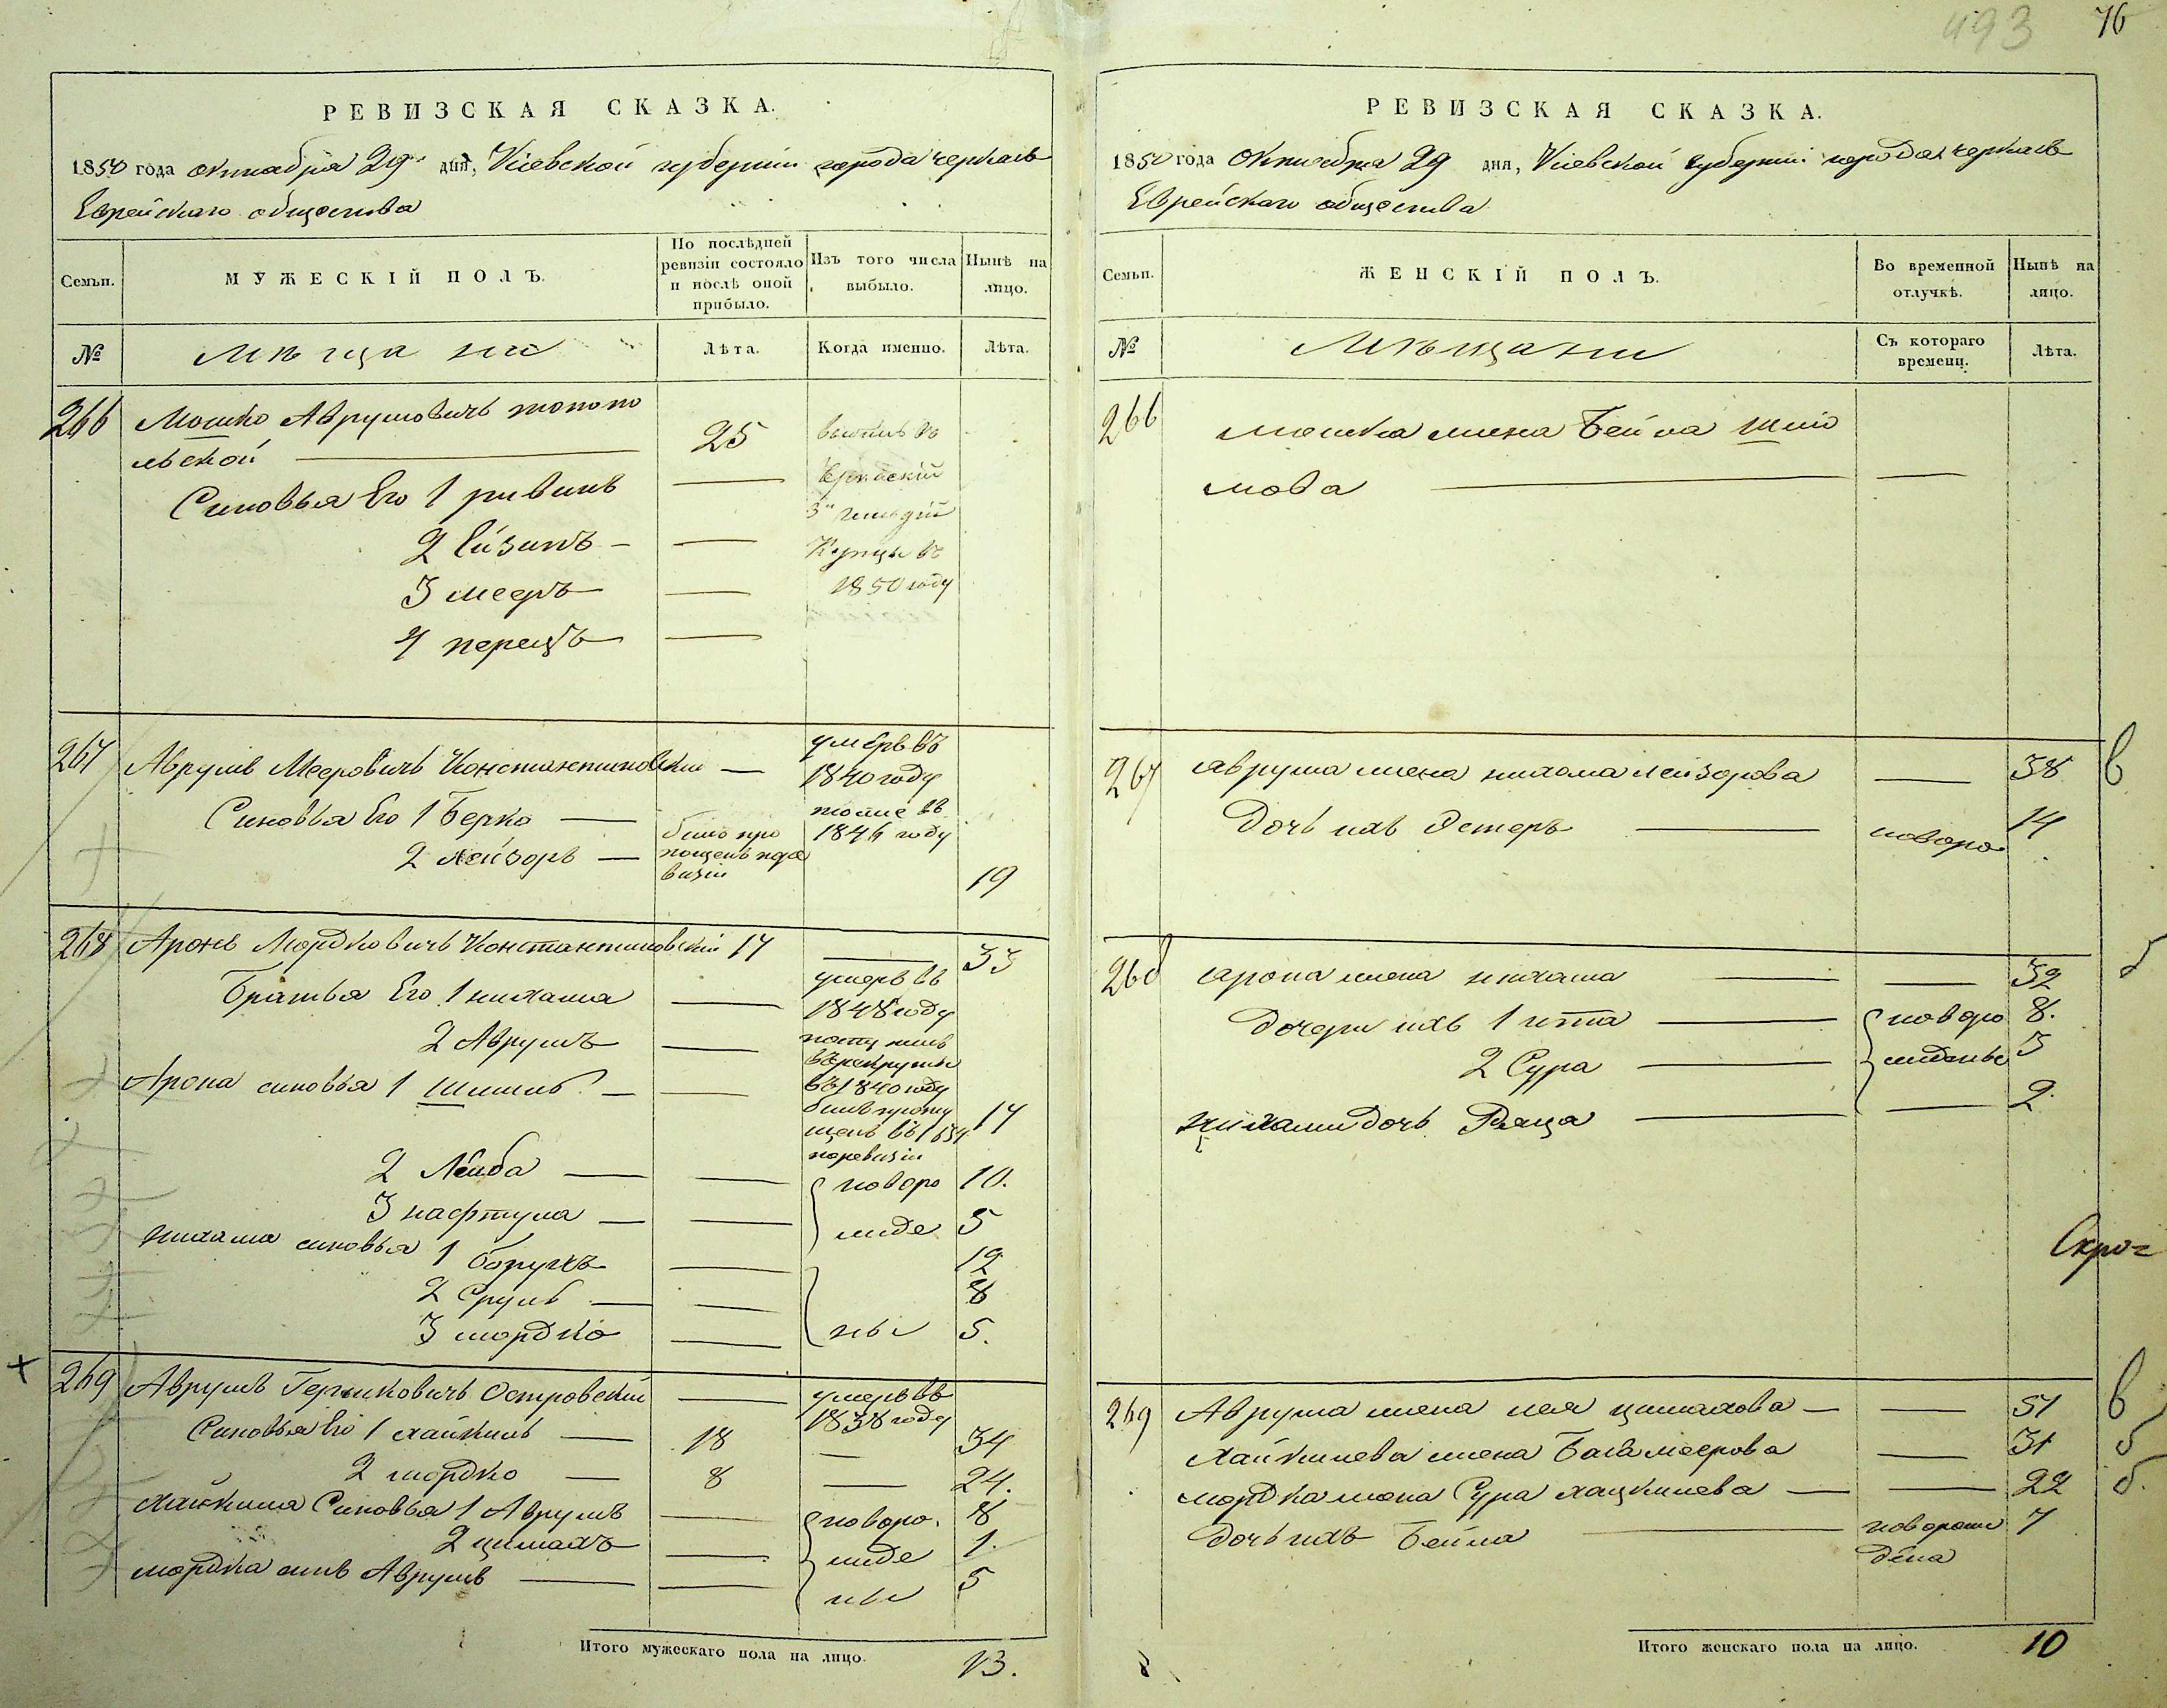 493 76
РЕВИЗСКАЯ СКАЗКА.
1850 года октября 29 дня, Кіевской губерніи города черкасъ
Еврейскаго общества
Семьи.
МУЖЕСКІЙ ПОЛЪ.
По послѣдней ревизіи состояло и послѣ оной прибыло.
Изъ того числа выбыло.
Нынѣ на лицо.
№
Мѣщани
Лѣта.
Когда именно.
Лѣта.
266 Мошко Аврумовичъ тополо 25
льской
Синовья Его 1 ривинъ
2 Ейзикъ
3 мееръ
4 перецъ
3й гильдій
Купцы въ
1850 году
267 Аврумъ Мееровичъ Константиновскій — умеръ въ 1840 году
Синовья Его 1 Берко — тоже въ 1846 году
2 лейзоръ — 19
268 Аронъ Мордковичъ Константиновскій 17 — 33
Братья Его 1 нихама — умеръ въ 1848 году
2 Аврумъ — поступилъ въ рекруты въ 1840 году
Арона синовья 1 Шмиль — билъ пропущенъ въ 1834 ревизіи 17
2 Лейба — 10.
3 нафтула — 5
нихама синовья 1 Борухъ — 12
2 Сруль — 8
3 мордко — 5.
новоро
жде
ны
269 Аврумъ Гершковичъ Островскій — умеръ въ 1838 году
Синовья Его 1 хайкиль — 18 — 34
2 мордко — 8 — 24.
хайкиля Синовья 1 Аврумъ — новоро. 8
2 цимахъ — жде 1.
мордка синъ Аврумъ — ны 5
Итого мужескаго пола на лицо. 13.
РЕВИЗСКАЯ СКАЗКА.
1850 года Октября 29 дня, Кіевской губерніи города черкасъ
Еврейскаго общества
Семьи.
ЖЕНСКІЙ ПОЛЪ.
Во временной отлучкѣ.
Нынѣ на лицо.
№
Мѣщани
Съ котораго времени.
Лѣта.
266 мошка жена Бейла Шлио
мова
267 Аврума жена нихама лейзорова — 38 в
дочь ихъ Эстеръ — новоро 14
268 арона жена нихама — 32 б
дочери ихъ 1 ита — новоро 8.
2 Сура — жденые 3
нихами дочь Раца — 2.
Скро=
269 Аврума жена лея цимахова — 51 в
хайкилева жена Бася меерова — 31 б
мордка жена Сура хацкилева — 22 б.
дочь ихъ Бейла — новорож 7
дена
Итого женскаго пола на лицо. 10